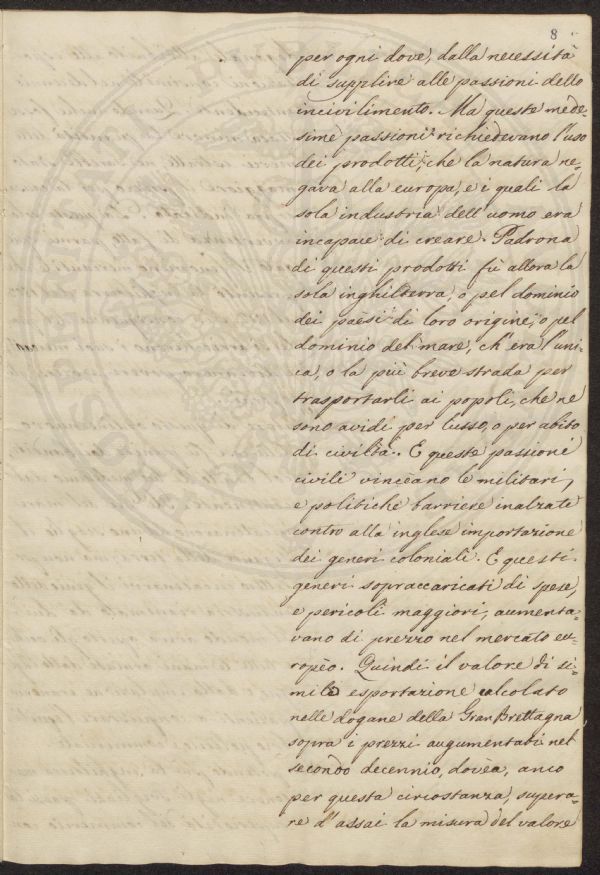 8
per ogni dove, dalla necessità
di supplire alle passioni dello
incivilimento. Ma queste mede-
sime passioni richiedevano l'uso
dei prodotti, che la natura ne-
gava alla europa, e i quali la
sola industria dell'uomo era
incapace di creare. Padrona
di questi prodotti fù allora la
sola inghilterra, o pel dominio
dei paesi di loro origine, o pel
dominio del mare, ch'era l'uni-
ca, o la più breve strada per
trasportarli ai popoli, che ne
sono avidi per lusso, o per abito
di civiltà. E queste passioni
civili vinceano le militari,
e politiche barriere inalzate
contro alla inglese importazione
dei generi coloniali. E questi
generi sopraccaricati di spese,
e pericoli maggiori, aumenta-
vano di prezzo nel mercato eu-
ropèo. Quindi il valore di si-
mile esportazione calcolato
nelle dogane della Gran Brettagna
sopra i prezzi augumentati nel
secondo decennio, dovèa, anco
per questa circostanza, supera-
re d'assai la misura del valore